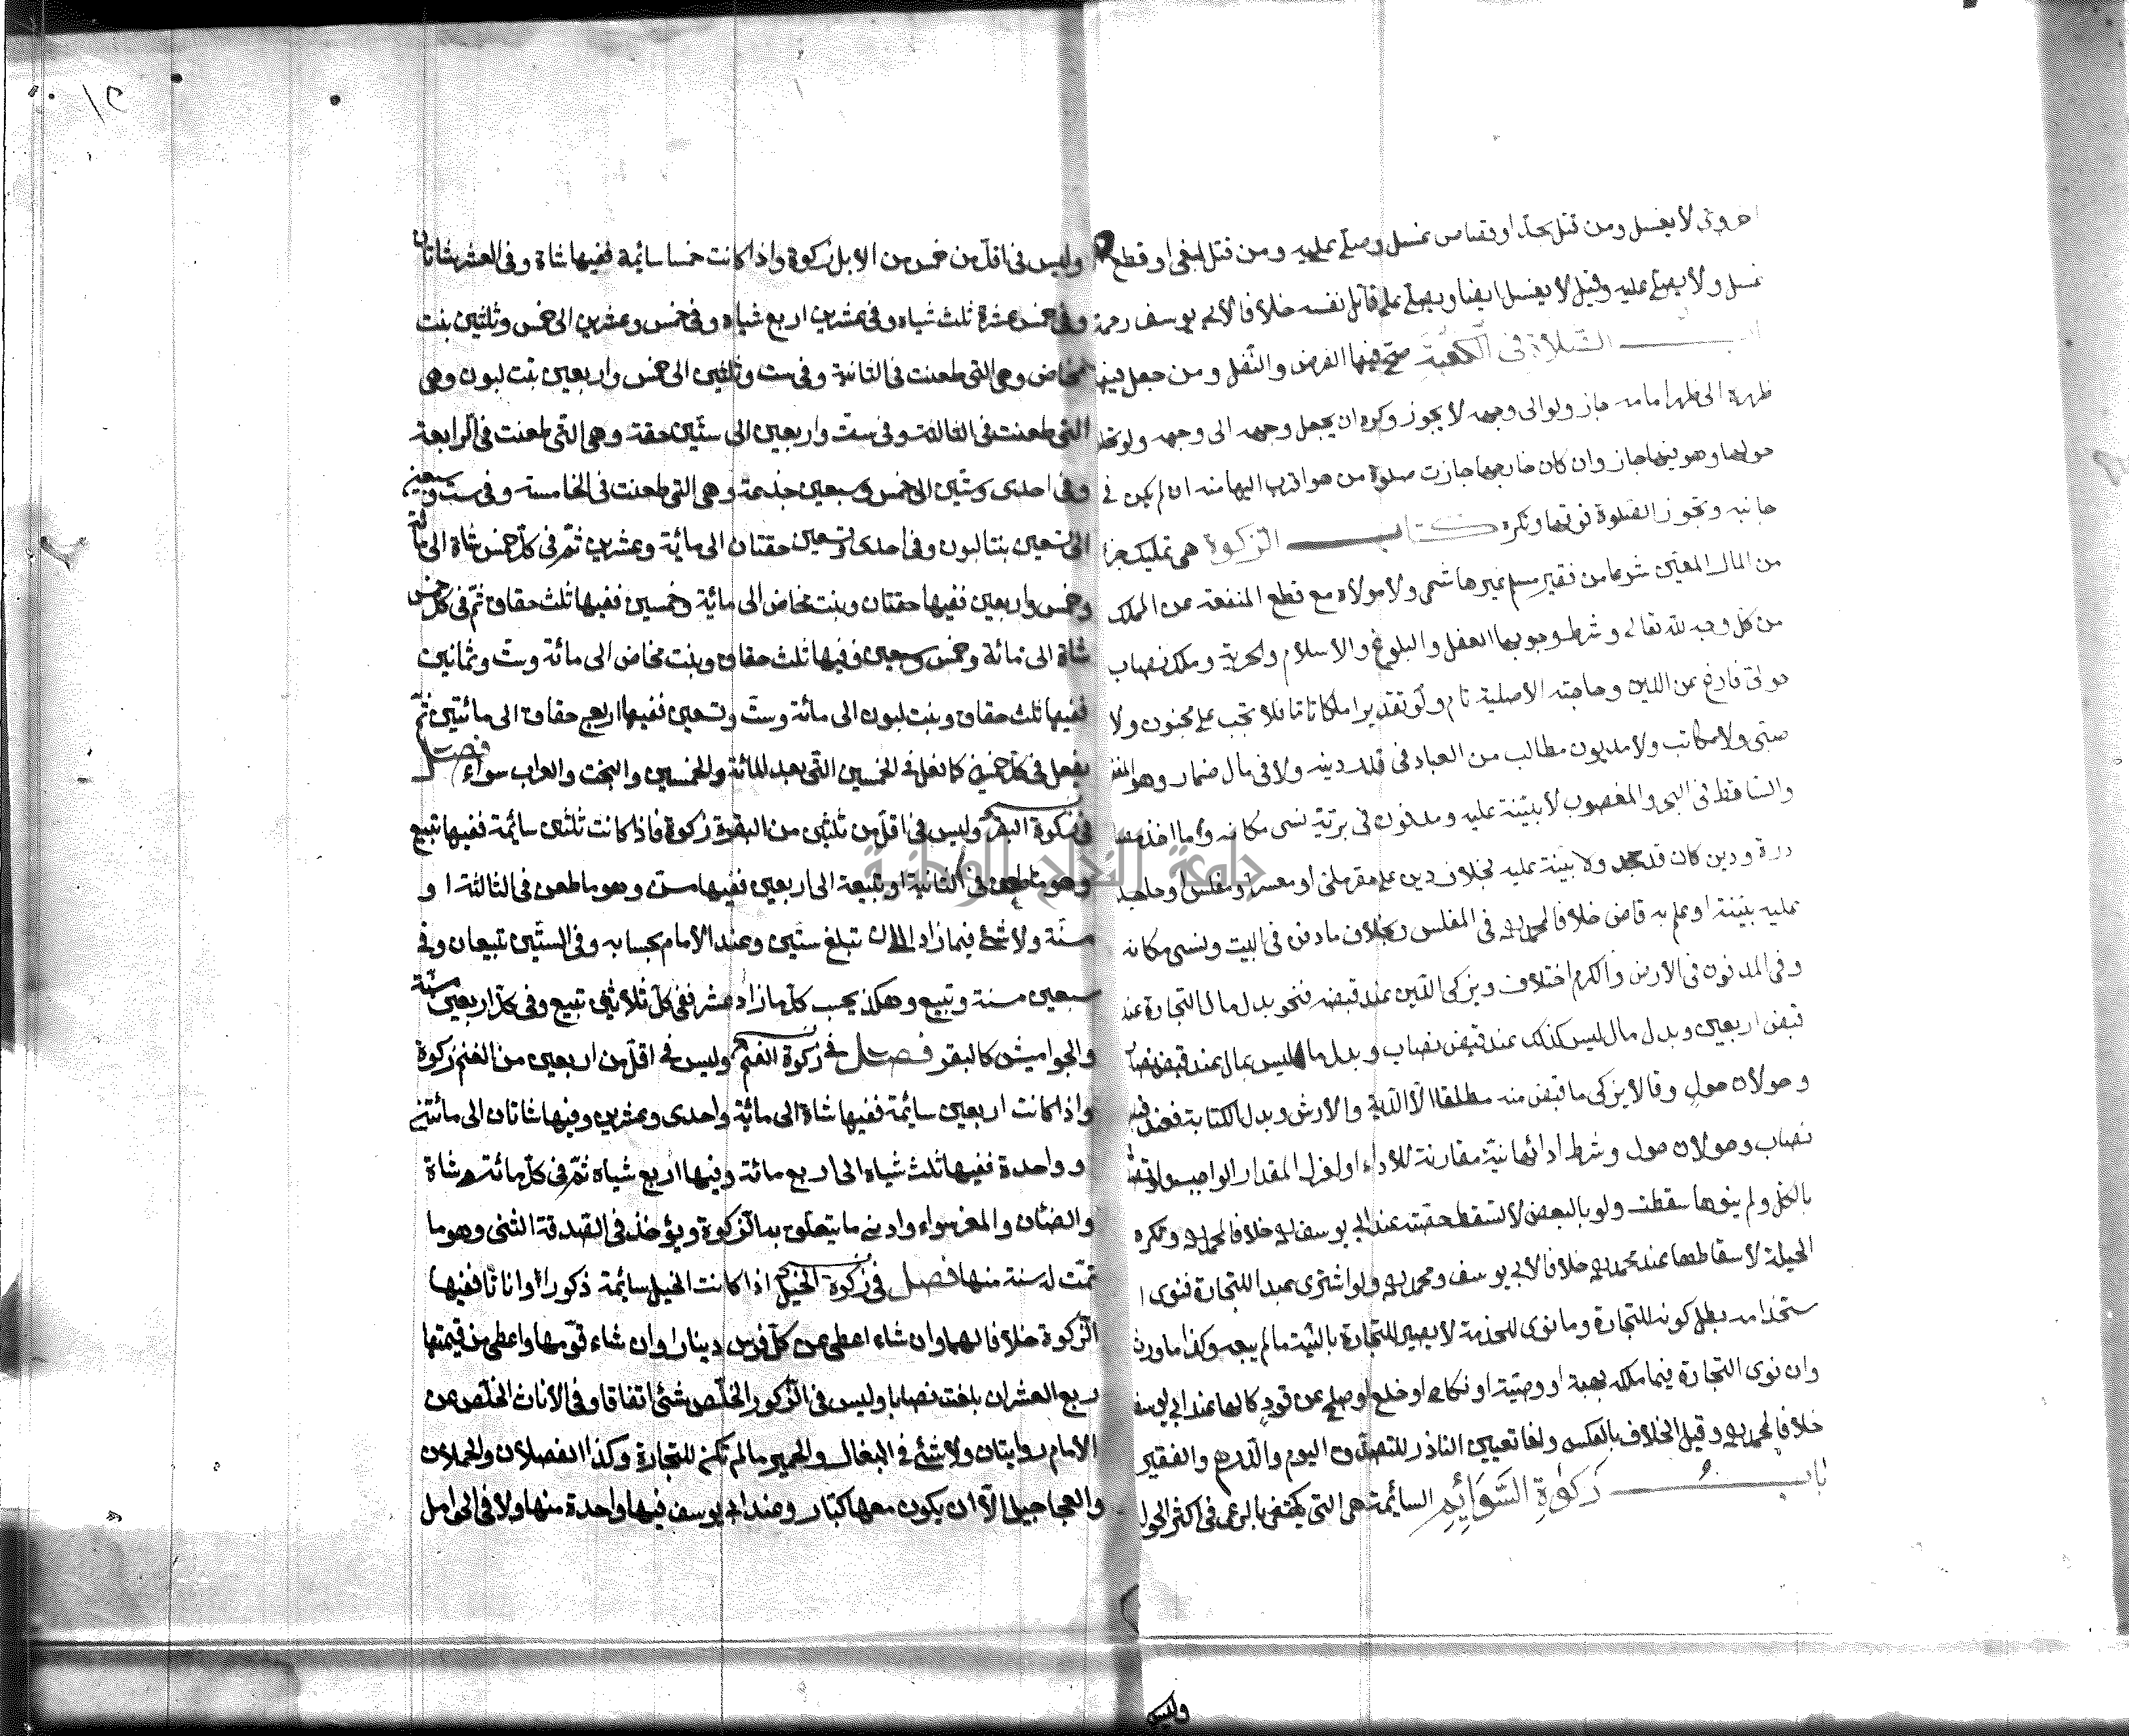 اخروى لا يغسل ومن قتل بحد او قصاص غسل وصلى عليه ومن قتل لبغى او قطع
غسل ولا يصلى عليه وقيل لا يغسل ايضا ويصلى على قاتل نفسه خلافا لابى يوسف رحمة
باب الصلاة فى الكعبة صح فيها الفرض والنفل ومن جعل فيها
ظهره الى ظهر امامه جاز ولو الى وجهه لا يجوز وكره ان يجعل وجهه الى وجهه ولو تحلقوا
حولها وهو فيها جاز وان كان خارجها جازت صلوة من هو اقرب اليها منه ان لم يكن فى
جانبه وتجوز الصلوة فوقها وتكره كتاب الزكوة هى تمليك جزء
من المال المعين شرعا من فقير مسلم غير هاشمى ولا مولاه مع قطع المنفعة عن المملك
من كل وجه لله تعالى وشرط وجوبها العقل والبلوغ والاسلام والحرية وملك نصاب
حولى فارغ عن الدين وحاجته الاصلية نام ولو تقديرا ملكا تاما فلا تجب على مجنون ولا
صبى ولا مكاتب ولا مديون مطالب من العباد فى قدر دينه ولا فى مال ضمار وهو المفقود
والساقط فى البحر والمغصوب لا بينة عليه ومدفون فى برية نسى مكانه وما اخذ مصا
درة ودين كان قد جحد ولا بينة عليه بخلاف دين على مقر ملئ او معسر او مفلس او جاحد
عليه بينة او علم به قاض خلافا لمحمد فى المفلس وبخلاف ما دفن فى البيت ونسى مكانه
وفى المدفون فى الارض والكرم اختلاف ويزكى الدين عند قبضه فنحو بدل مال التجارة عند
قبض اربعين وبدل مال ليس كذلك عند قبض نصاب وبدل ما ليس بمال عند قبض نصاب
وحولان حول وقالا يزكى ما قبض منه مطلقا الا الدية والارش وبدل الكتابة فعند قبض
نصاب وحولان حول وشرط ادائها نية مقارنة للاداء او لعزل المقدار الواجب ولو تصدق
بالكل ولم ينوها سقطت ولو بالبعض لا تسقط حصته عند ابى يوسف خلافا لمحمد وتكره
الحيلة لاسقاطها عند محمد خلافا لابى يوسف ومحمد ولو اشترى عبدا للتجارة فنوى ا
ستخدامه بطل كونه للتجارة وما نوى للخدمة لا يصير للتجارة بالنية ما لم يبعه وكذا ما ورث
وان نوى التجارة فيما ملكه بهبة او وصية او نكاح او خلع او صلح عن قود كان لها عند ابى يوسف
خلافا لمحمد وقيل الخلاف بالعكس ولغا تعيين الناذر للتصدق اليوم والدرهم والفقير
باب زكوة السوائم السائمة هى التى تكتفى بالرعى فى اكثر الحول
وليس
وليس فى اقل من خمس من الابل زكوة واذا كانت خمسا سائمة ففيها شاة وفى العشر شاتان
وفى خمس عشرة ثلث شياه وفى عشرين اربع شياه وفى خمس وعشرين الى خمس وثلثين بنت
مخاض وهى التى طعنت فى الثانية وفى ست وثلثين الى خمس واربعين بنت لبون وهى
التى طعنت فى الثالثة وفى ست واربعين الى ستين حقة وهى التى طعنت فى الرابعة
وفى احدى وستين الى خمس وسبعين جذعة وهى التى طعنت فى الخامسة وفى ست وسبعين
الى تسعين بنتا لبون وفى احدى وتسعين حقتان الى مائة وعشرين ثم فى كل خمس شاة الى مائة
وخمس واربعين ففيها حقتان وبنت مخاض الى مائة وخمسين ففيها ثلث حقاق ثم فى كل خمس
شاة الى مائة وخمس وسبعين ففيها ثلث حقاق وبنت مخاض الى مائة وست وثمانين
ففيها ثلث حقاق وبنت لبون الى مائة وست وتسعين ففيها اربع حقاق الى مائتين ثم
يفعل فى كل خمسين كما فعل فى الخمسين التى بعد المائة والخمسين والبخت والعراب سواء فصل
فى زكوة البقر وليس فى اقل من ثلثين من البقرة زكوة فاذا كانت ثلثين سائمة ففيها تبيع
وهو ما طعن فى الثانية او تبيعة الى اربعين ففيها مسن وهو ما طعن فى الثالثة او
مسنة ولا شئ فيما زاد الى ان تبلغ ستين وعند الامام بحسابه وفى الستين تبيعان وفى
سبعين مسنة وتبيع وهكذا يحسب كل ما زاد عشر ففى كل ثلاثين تبيع وفى كل اربعين مسنة
والجواميش كالبقر فصل فى زكوة الغنم وليس فى اقل من اربعين من الغنم زكوة
واذا كانت اربعين سائمة ففيها شاة الى مائة واحدى وعشرين وفيها شاتان الى مائتين
وواحدة ففيها ثلث شياه الى اربع مائة وفيها اربع شياه ثم فى كل مائة شاة
والضئان والمعز سواء وادنى ما يتعلق به الزكوة ويؤخذ فى الصدقة الثنى وهو ما
تمت له سنة منها فصل فى زكوة الخيل اذا كانت الخيل سائمة ذكورا وانا ثا ففيها
الزكوة خلافا لهما وان شاء اعطى عن كل فرس دينارا وان شاء قومها واعطى من قيمتها
ربع العشر ان بلغت نصابا وليس فى الذكور الخلص شئ اتفاقا وفى الاناث الخلص عن
الامام روايتان ولا شئ فى البغال والحمير ما لم تكن للتجارة وكذا الفصلان والحملان
والعجاجيل الا ان يكون معها كبار وعند ابى يوسف فيها واحدة منها ولا فى الحوامل
جامعة النجاح الوطنية